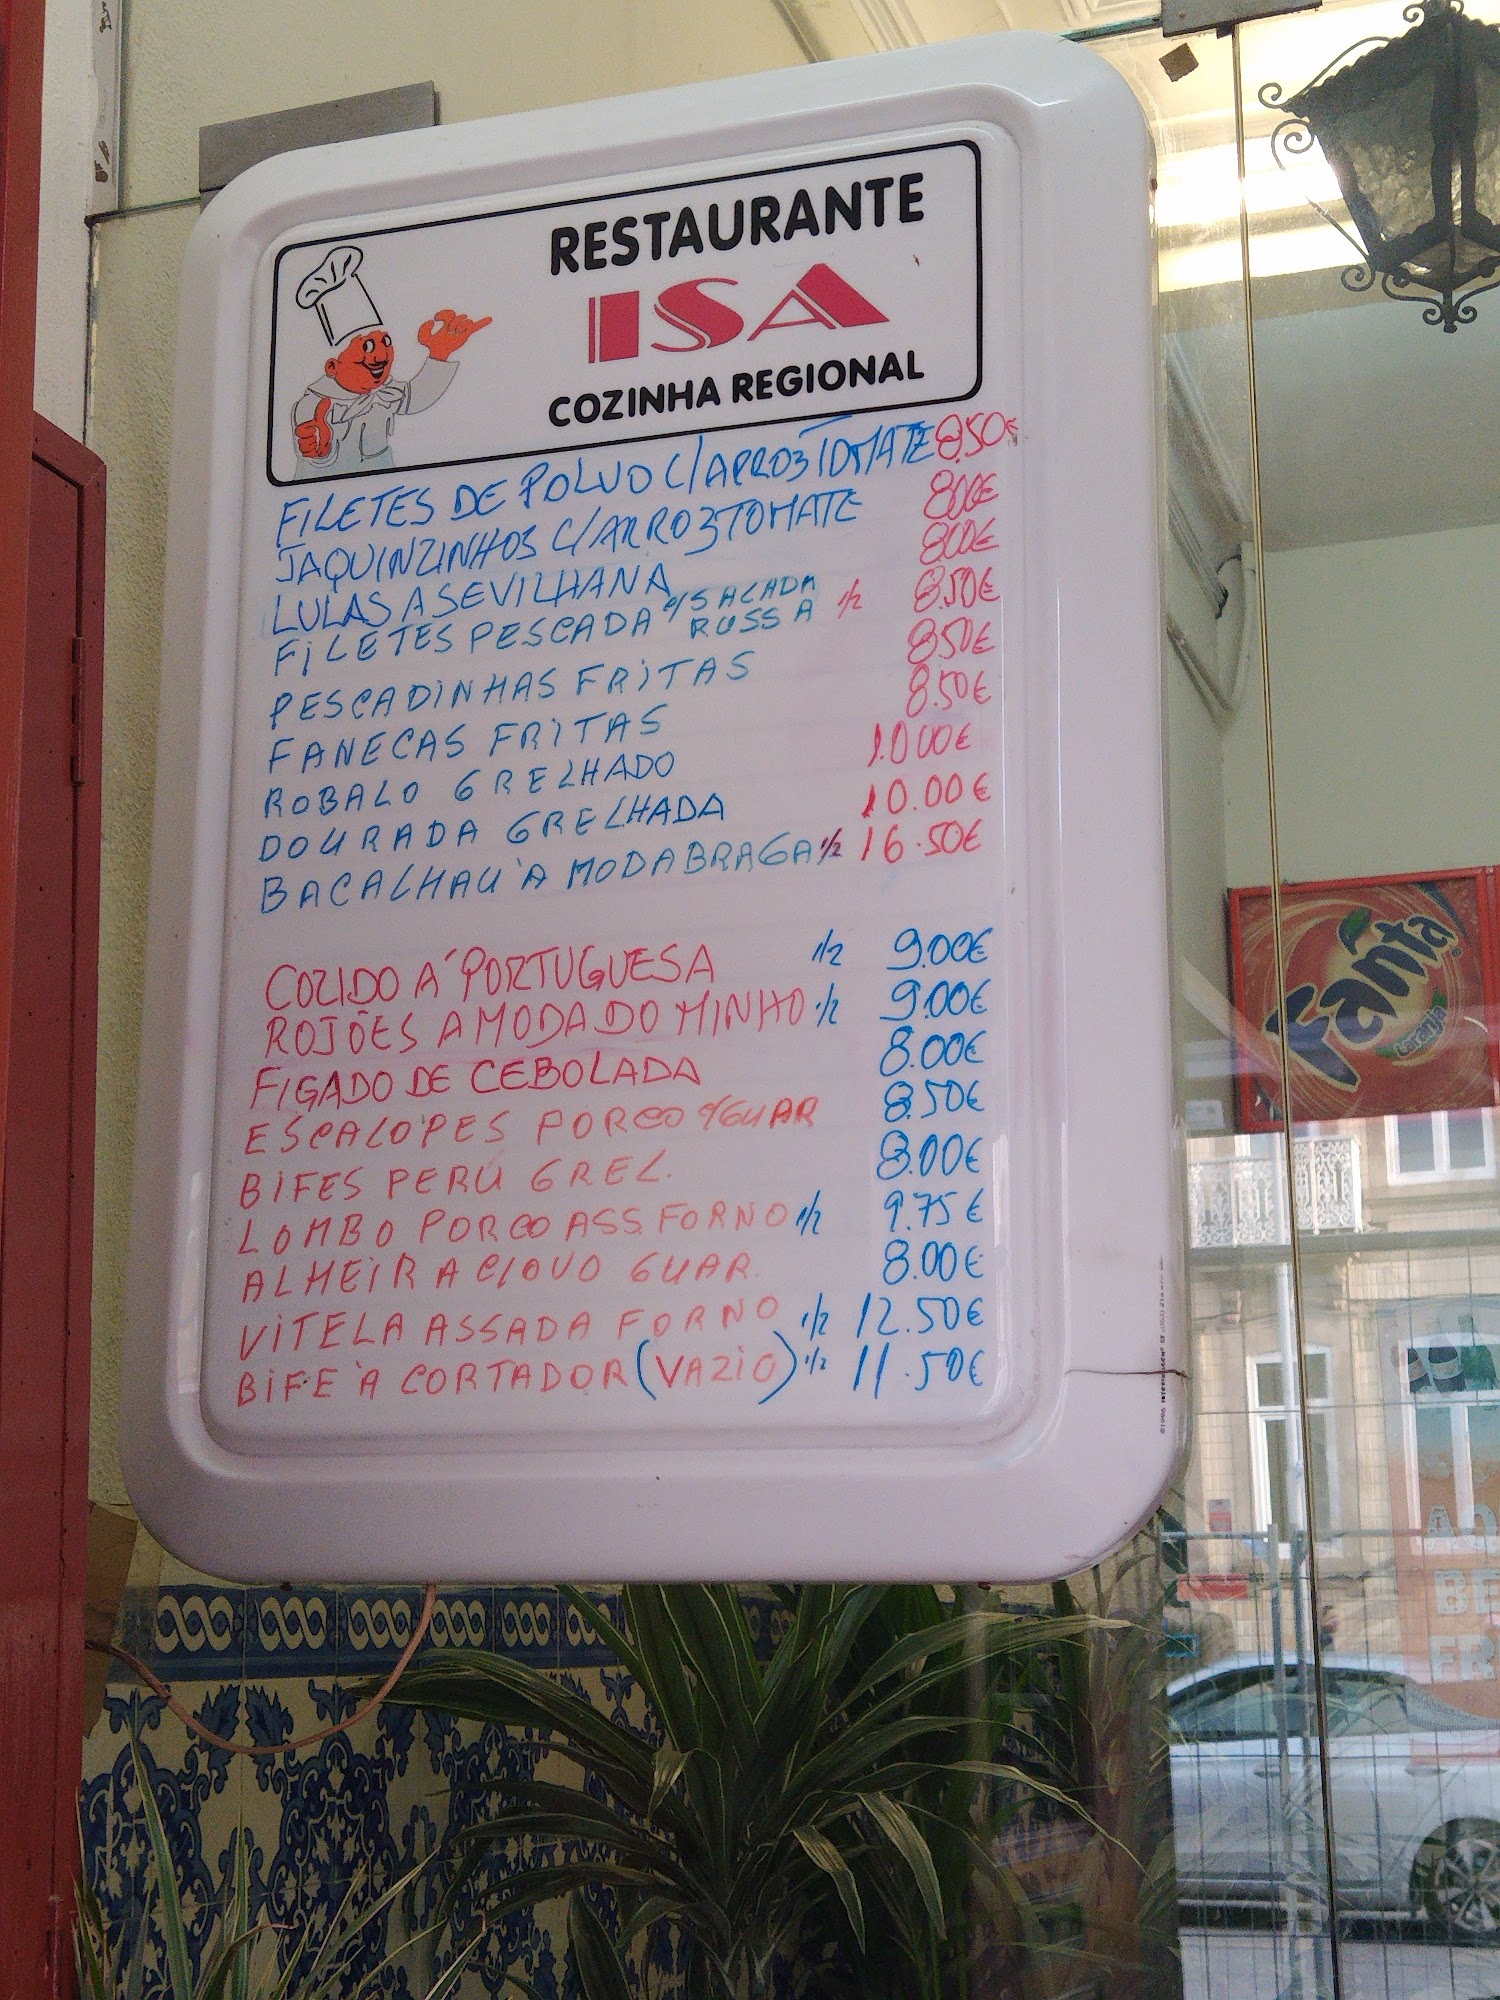 RESTAURANTE
ISA
COZINHA REGIONAL
FILETES DE POLVO C/ARROZ TOMATE 8.50€
JAQUINZINHOS C/ARROZ TOMATE 8.00€
LULAS A SEVILHANA 8.00€
FILETES PESCADA C/SALADA RUSSA 1/2 8.50€
PESCADINHAS FRITAS 8.50€
FANECAS FRITAS 8.50€
ROBALO GRELHADO 10.00€
DOURADA GRELHADA 10.00€
BACALHAU À MODA BRAGA 1/2 16.50€
COZIDO A´PORTUGUESA 1/2 9.00€
ROJÕES A MODA DO MINHO 1/2 9.00€
FIGADO DE CEBOLADA 8.00€
ESCALOPES PORCO C/GUAR 8.50€
BIFES PERÚ GREL. 8.00€
LOMBO PORCO ASS. FORNO 1/2 9.75€
ALHEIRA C/OVO GUAR. 8.00€
VITELA ASSADA FORNO 1/2 12.50€
BIFE À CORTADOR (VAZIO) 1/2 11.50€
Fanta
Laranja